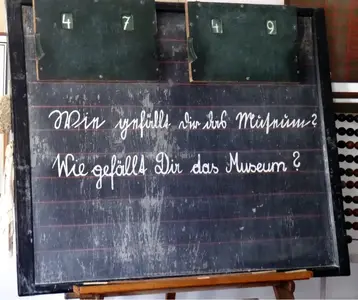 4 7 4 9
Wie gefällt Dir das Museum?
Wie gefällt Dir das Museum?